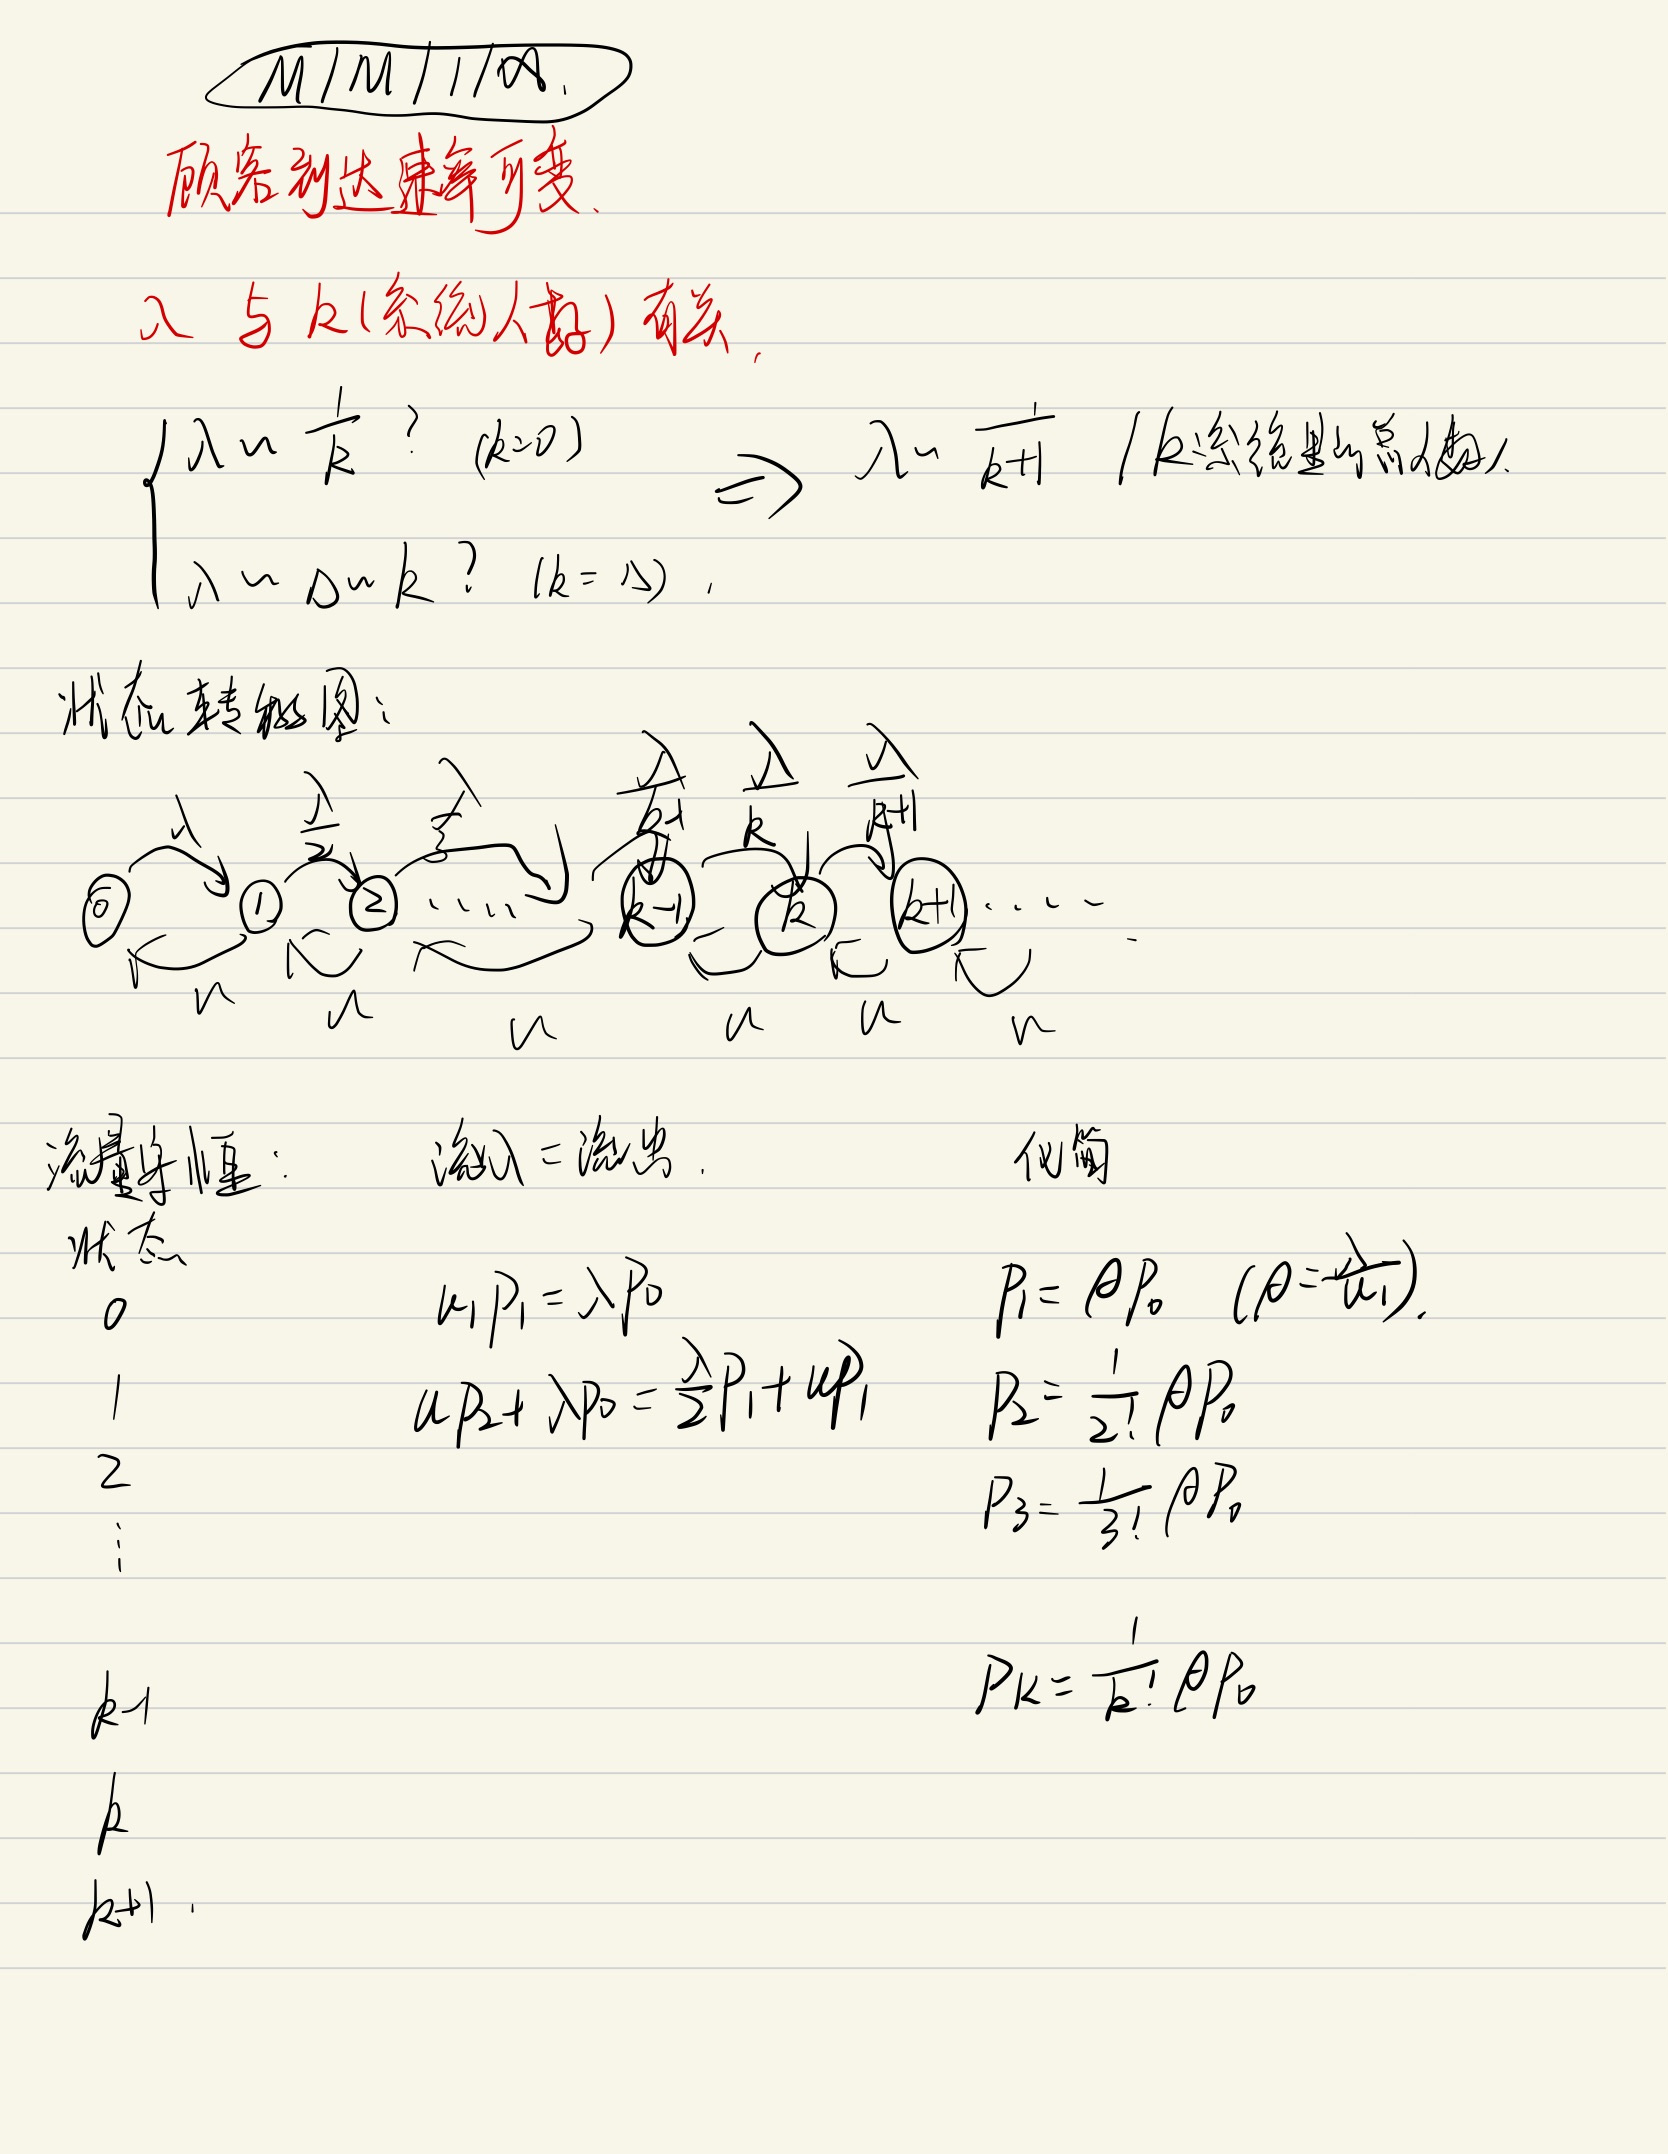 M/M/1/∞.
顾客到达速率可变.
λ 与 k(系统人数)有关.
λ ~ 1/k ? (k=0) ⇒ λ ~ 1/(k+1) / k系统里的总人数/.
λ ~ Δ ~ k ? (k = ) .
状态转移图:
λ λ/2 λ/3 λ/(k-1) λ/k λ/(k+1)
0 1 2 ..... k-1 k k+1 .....
u u u u u u
流量守恒: 流入=流出. 化简
状态
0 u₁p₁ = λp₀ p₁ = ρp₀ (ρ = λ/u₁).
1 up₂ + λp₀ = λ/2 p₁ + up₁ p₂ = 1/2! ρp₀
2 p₃ = 1/3! ρp₀
⋮
k-1 pk = 1/k! ρp₀
k
k+1 .